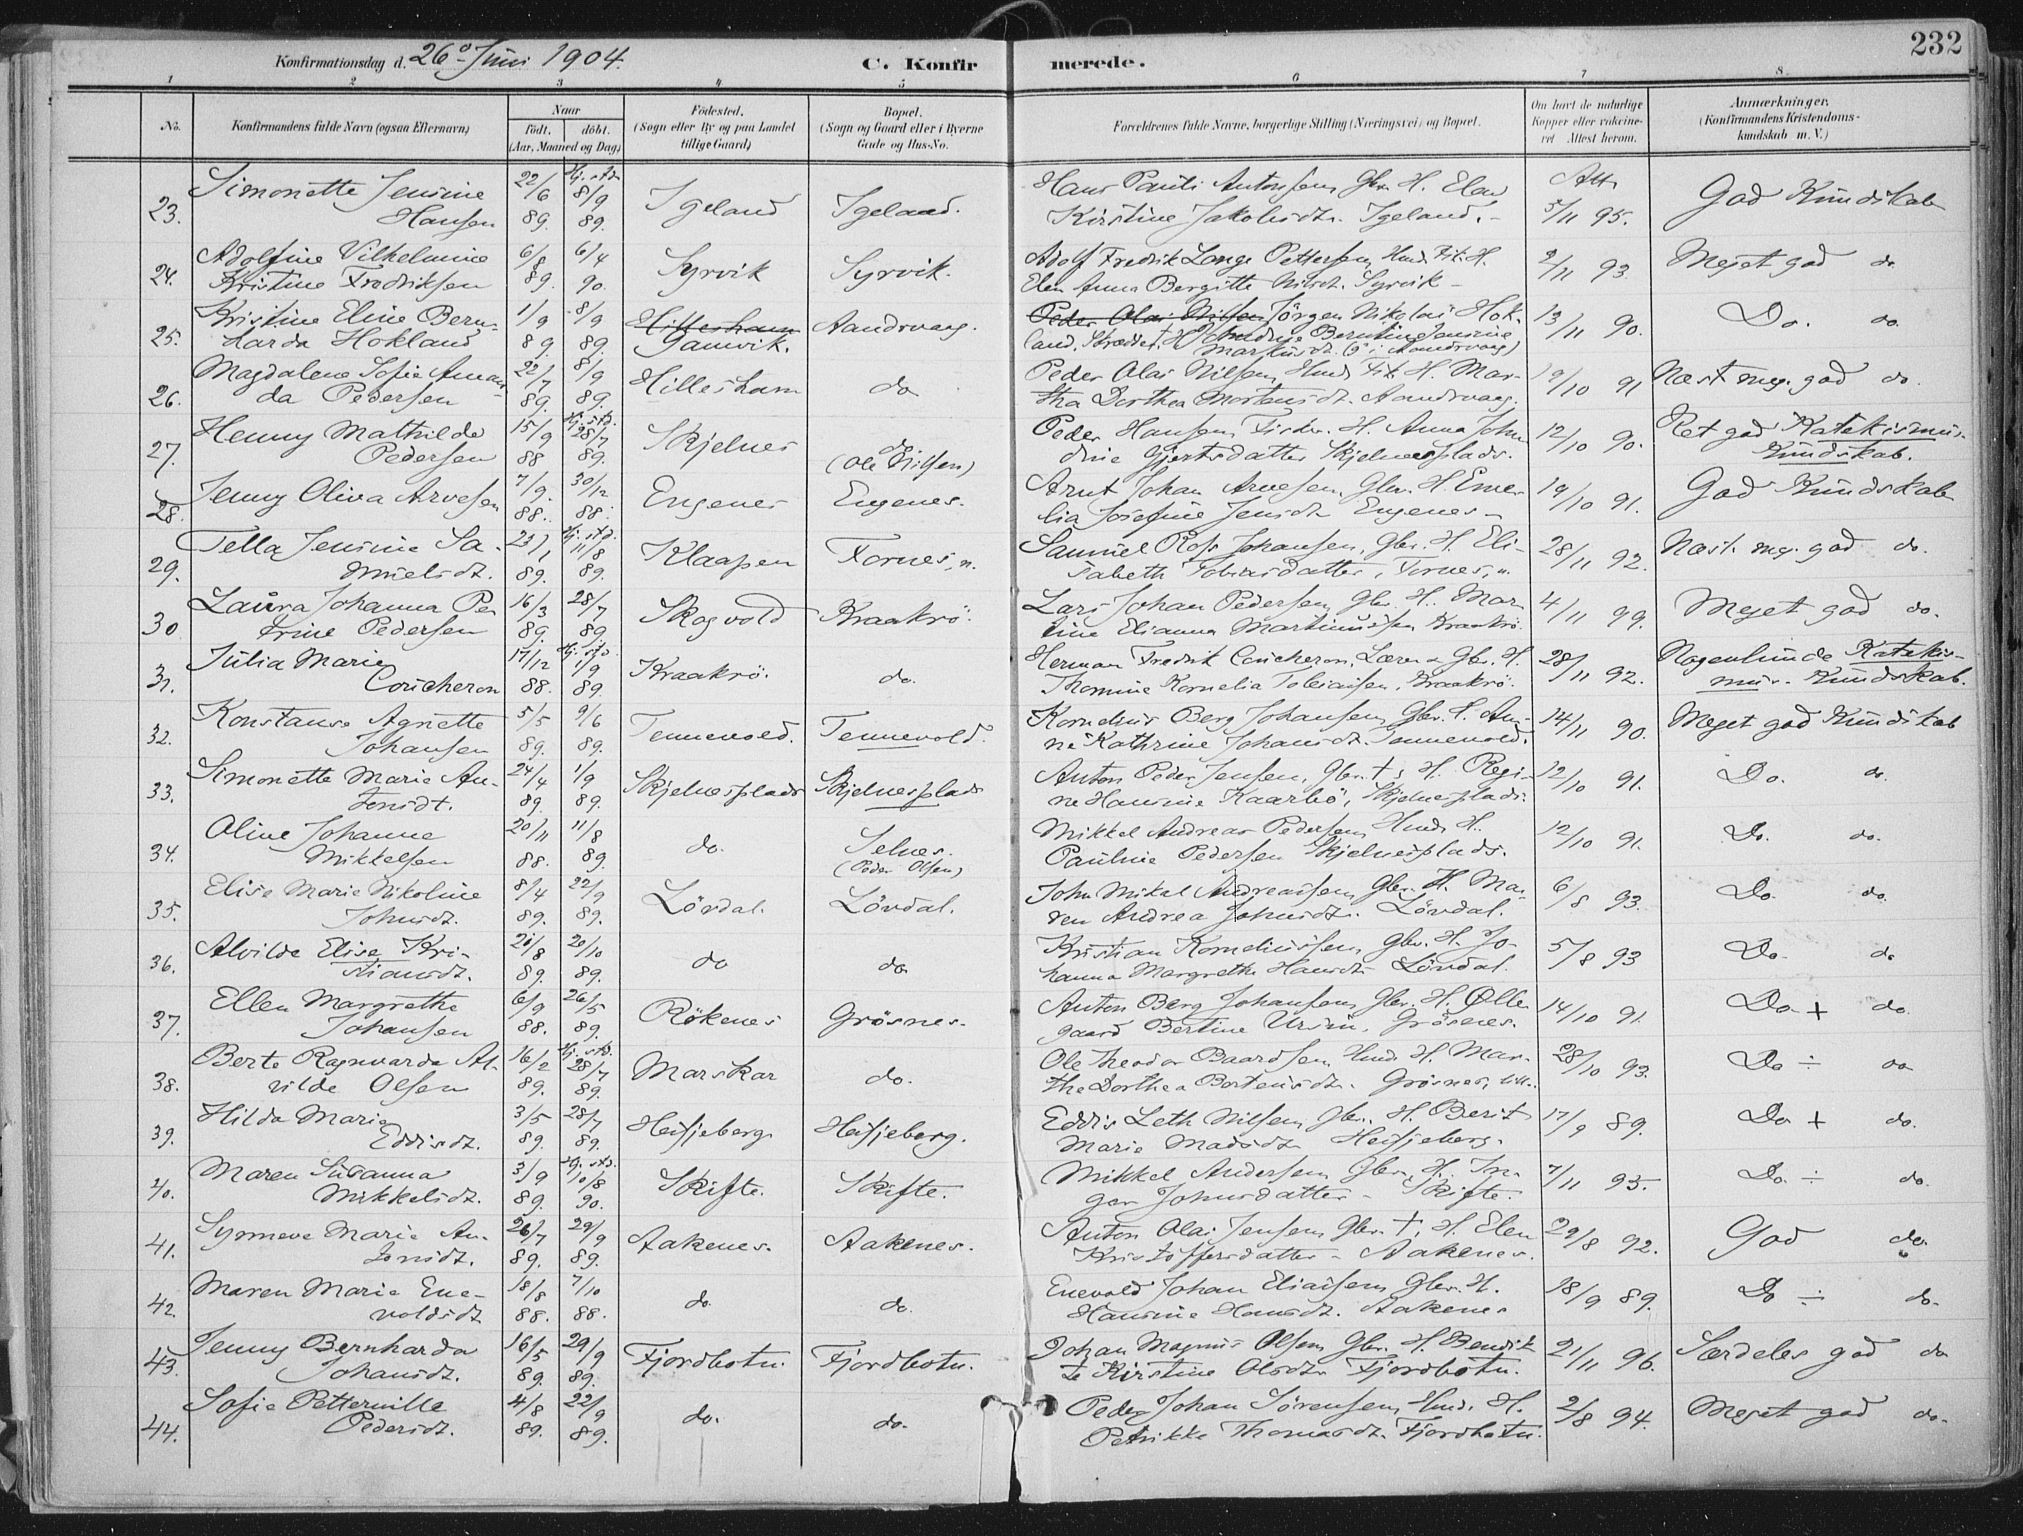 232
Konfirmationsdag d. 26º Juni 1904.
C. Konfirmerede.
1 2 3 4 5 6 7 8
No.
Konfirmandens fulde Navn (ogsaa Efternavn)
Naar
födt. döbt.
(Aar, Maaned og Dag)
Födested.
(Sogn eller By og paa Landet
tillige Gaard)
Bopæl.
(Sogn og Gaard eller i Byerne
Gade og Hus-No.
Forældrenes fulde Navne, borgerlige Stilling (Næringsvei) og Bopæl.
Om havt de naturlige
Kopper eller vakcine-
ret Attest herom.
Anmærkninger.
(Konfirmandens Kristendoms-
kundskab m. V.)
Simonette Jensine 22/6 Hj. std. 8/9 Igeland Igeland. Hans Pauli Antonsen, Gbr. H. Elen Att. God Kundskab
23. Hansen 89. 89. Kirstine Jakobsdt. Igeland. 5/11 95.
Adolfine Vilhelmine 6/8 6/4 Syrvik Syrvik. Adolf Fredrik Lange Pettersen, Hmd. Fit. H. 2/11 93. Meget god do
24. Kristine Fredriksen 89. 90. Elen Anna Bergitte Nilsdt. Syrvik
Kristine Eline Bern- 1/9 8/9 Hillesham Aandsvaag. Peder Olai Nilsen Jørgen Nikolai Hok- 13/11 90. Do. do.
25. harda Hokland 89 89. Gamvik. land, Skrædder, H. Berntine Jensine
Markusdt. ( i Aandsvaag)
Magdalena Sofie Aman- 22/7 8/9 Hillesham do Peder Olai Nilsen, Hmd. Fit. H. Mar- 19/10 91 Næst meg. god do.
26. da Pedersen 89. 89. tha Dorthea Mortensdt. Aandsvaag.
Henny Mathilde 15/9 Hj. std. 28/7 Skjelnes do Peder Hansen, Fisker. H. Anna John 12/10 90. Ret god Katekismus-
27. Pedersen 88 89. (Ole Nilsen) dine Gjertsdatter Skjelnesplads. Kundskab.
Jenny Oliva Arvesen 7/9. 30/12 Engenes Engenes. Arnt Johan Arvesen, Gbr. H. Eme- 19/10 91. God Kundskab
28. 88. 88. lia Josefine Jensdt. Engenes
Tella Jensine Sa- 23/1 Hj. std. 11/8 Klaapen Fornes, n. Samuel Ross Johansen, Gbr. H. Eli- 28/11 92. Næst. meg. god do.
29. muelsdt. 89. 89. sabeth Tobiasdatter, Fornes, n.
Laura Johanna Pe 16/3 28/7 Skogvold Kraakrö. Lars Johan Pedersen, Gbr. H. Mar- 4/11 99. Meget god do.
30. trine Pedersen 89. 89. tine Elianna Martinussen Kraakrö.
Julia Marie 17/12 Hj. std. 1/9 Kraakrö. do. Herman Fredrik Coucheron, Lærer o Gbr. H. 28/11 92. Nogenlunde Katekis-
31. Coucheron 88. 89. Thomine Kornelia Tobiassen, Kraakrö. mus-Kundskab.
Konstanse Agnette 5/5 9/6 Tennevold. Tennevold. Kornelius Berg Johansen, Gbr. H. An- 14/11 90. Meget god Kundskab
32. Johansen 89. 89. ne Kathrine Johansdt. Tennevold.
Simonette Marie An- 24/4 1/9 Skjelnesplads Skjelnesplads Anton Peder Jensen, Gbr. †, H. Regi- 12/10 91. Do. do.
33. tonsdt. 89. 89. ne Hansine Kaarbö, Skjelnesplads.
Oline Johanne 20/11 11/8 do. Selnes. Mikkel Andreas Pedersen, Hmd. H. 12/10 91. Do. do.
34. Mikkelsen 88. 89. (Peder Olsen) Pauline Pedersen Skjelnesplads.
Elise Marie Nikoline 8/4 22/9 Lövdal. Lövdal. John Mikal Andreassen, Gbr. H. Ma- 6/8 93. Do. do.
35. Johnsdt. 89. 89. ren Andrea Johnsdt. Lövdal.
Alvilde Elise Kri- 21/8 20/10 do do. Kristian Korneliussen, Gbr. H. Jo- 5/8 93 Do. do
36. stiansdt. 89. 89. hanna Margrethe Hansdt. Lövdal.
Ellen Margrethe 6/9 26/5 Rökenes Grösnes. Anton Berg Johansen, Gbr. H. Olle- 14/10 91. Do + do.
37. Johansen 88. 89. gaard Bertine Ursin, Grösnes.
Berte Ragnvarda Al- 16/2 Hj. std. 28/7 Marskar do. Ole Theodor Baardsen, Hmd. H. Mar- 28/10 93. Do ÷ do
38. vilde Olsen 89. 89. the Dorthea Bortensdt. Grösnes,
Hilda Marie 3/5 28/7 Heisjeberg. Heisjeberg. Eddis Leth Nilsen, Gbr. H. Berit 17/9 89. Do + do.
39. Eddisdt. 89. 89. Marie Madsdt. Heisjeberg.
Maren Susanna 3/9 Hj. std. 10/8 Skifte. Skifte. Mikkel Andersen, Gbr. H. In- 7/11 93. Do. ÷ do.
40. Mikkelsdt. 89. 90. ger Johnsdatter - Skifte.
Synneve Marie An- 26/7 29/9 Aakenes. Aakenes. Anton Olai Jensen, Gbr. †, H. Elen 29/8 92. God do.
41. tonsdt. 89. 89. Kristoffersdatter - Aakenes.
Maren Marie Ene- 18/8 7/10 do. do. Enevold Johan Eliassen, Gbr. H. 18/9 89. Do ÷ do.
42. voldsdt. 88. 88. Hansine Hansdt. Aakenes
Jenny Bernharda 16/5 29/9 Fjordbotn. Fjordbotn. Johan Magnus Olsen, Gbr. H. Bendik- 21/11 96. Særdeles god do
43. Johansdt. 89. 89. te Kirstine Olsdt. Fjordbotn.
Sofie Petterville 4/8 22/9 do. do. Peder Johan Sörensen, Hmd. H. 2/8 94. Meget god do.
44. Pedersdt. 89. 89. Petrikke Thomasdt. Fjordbotn.